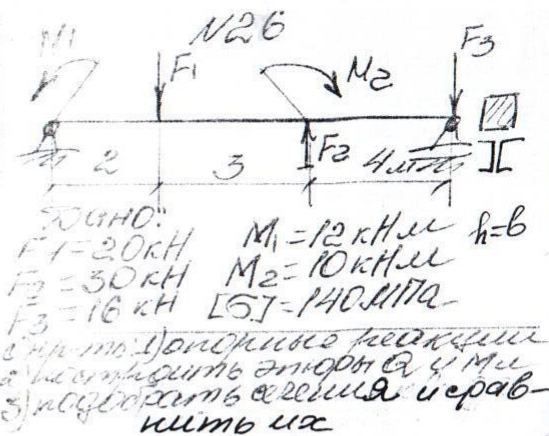 N26
M1 F1 M2 F3
F2
2 3 4м
Дано:
F1=20кН M1=12кНм h=b
F2=30кН M2=10кНм
F3=16кН [σ]=140МПа
1) опорные реакции
2) построить эпюры Q и Ми
3) подобрать сечения и срав-
нить их